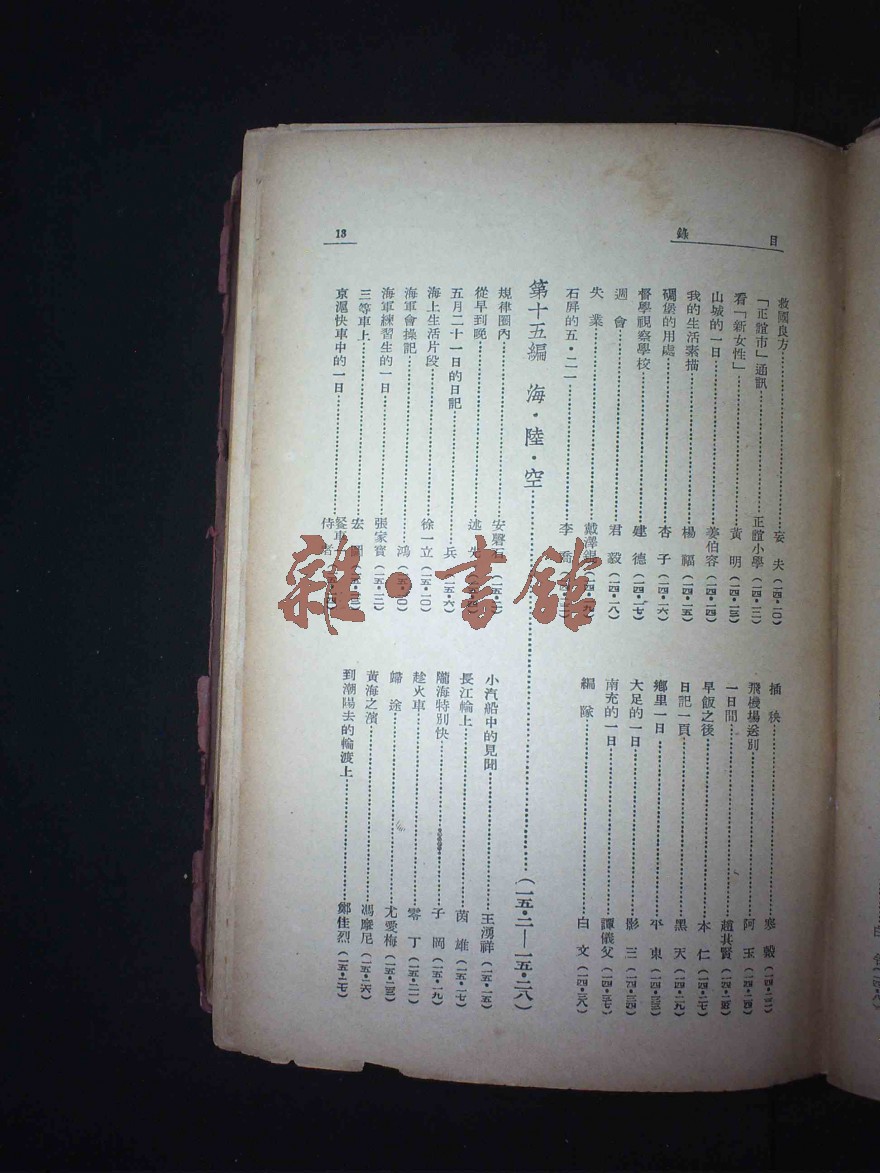 目錄
13
救國良方……安夫(一四・一〇)
「正誼市」通訊……正誼小學(一四・一二)
看「新女性」……黃明(一四・一三)
山城的一日……姜伯容(一四・一四)
我的生活素描……楊福(一四・一五)
碉堡的用處……杏子(一四・一六)
督學視察學校……建德(一四・一七)
週會……君毅(一四・一八)
失業……戴澤錕(一四・一九)
石屏的五・二一……李喬
插秧……寒穀(一四・二二)
飛機場送別……阿玉(一四・二四)
一日間……趙其賢(一四・二五)
早飯之後……本仁(一四・二七)
日記一頁……黑天(一四・二九)
鄉里一日……平東(一四・三三)
大足的一日……影三(一四・三四)
南充的一日……譚儀父(一四・三七)
編隊……白文(一四・三八)
第十五編 海・陸・空……(一五・二—一五・二八)
規律圈內……安磬石(一五・二)
從早到晚……述先(一五・四)
五月二十一日的日記……兵(一五・六)
海上生活片段……徐一立(一五・一〇)
海軍會操記……鴻(一五・一〇)
海軍練習生的一日……張家寶(一五・一二)
三等車上……宏圖(一五・一三)
京滬快車中的一日……餐車侍者(一五・一四)
小汽船中的見聞……王湧祥(一五・一五)
長江輪上……茵雄(一五・一七)
隴海特別快……子岡(一五・一九)
趁火車……零丁(一五・二一)
歸途……尤愛梅(一五・二三)
黃海之濱……馮靡尼(一五・二六)
到潮陽去的輪渡上……鄭佳烈(一五・二七)
雜・書館